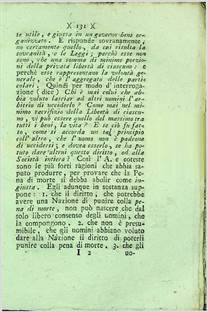 X 131 X
te utile, e giusta in un governo bene or-
ganizzato. E risponde sovranamente,
no certamente quello, da cui risulta la
sovranità, e le Leggi; perchè esse non
sono, che una somma di minime porzio-
ni della privata libertà di ciascuno: e
perchè esse rappresentano la volontà ge-
nerale, che è l'aggregato delle parti-
colari. Quindi per modo d'interroga-
zione (dice) Chi è mai colui che ab-
bia voluto lasciar ad altri uomini l'ar-
bitrio di ucciderlo? Come mai nel mi-
nimo sacrifizio della Libertà di ciascu-
no, vi può essere quello del massimo tra
tutti i beni, la vita? E se ciò fu fat-
to, come si accorda un tal principio
coll'altro, che l'uomo non è padrone
di uccidersi; e dovea esserlo, se ha po-
tuto dare altrui questo diritto, od alla
Società intera? Così l'A. e coteste
sono le più forti ragioni che abbia sa-
puto produrre, per provare che la Pe-
na di morte si debba abolir come in-
giusta. Egli adunque in sostanza sup-
pone: 1. che il diritto, che potrebbe
avere una Nazione di punire colla pe-
na di morte, non può nascere che dal
solo libero consenso degli uomini, che
la compongono. 2. che non è presu-
mibile, che gli uomini abbiano voluto
dare alla Nazione il diritto di poterli
punire colla pena di morte. 3. che gli
I 2 uo-